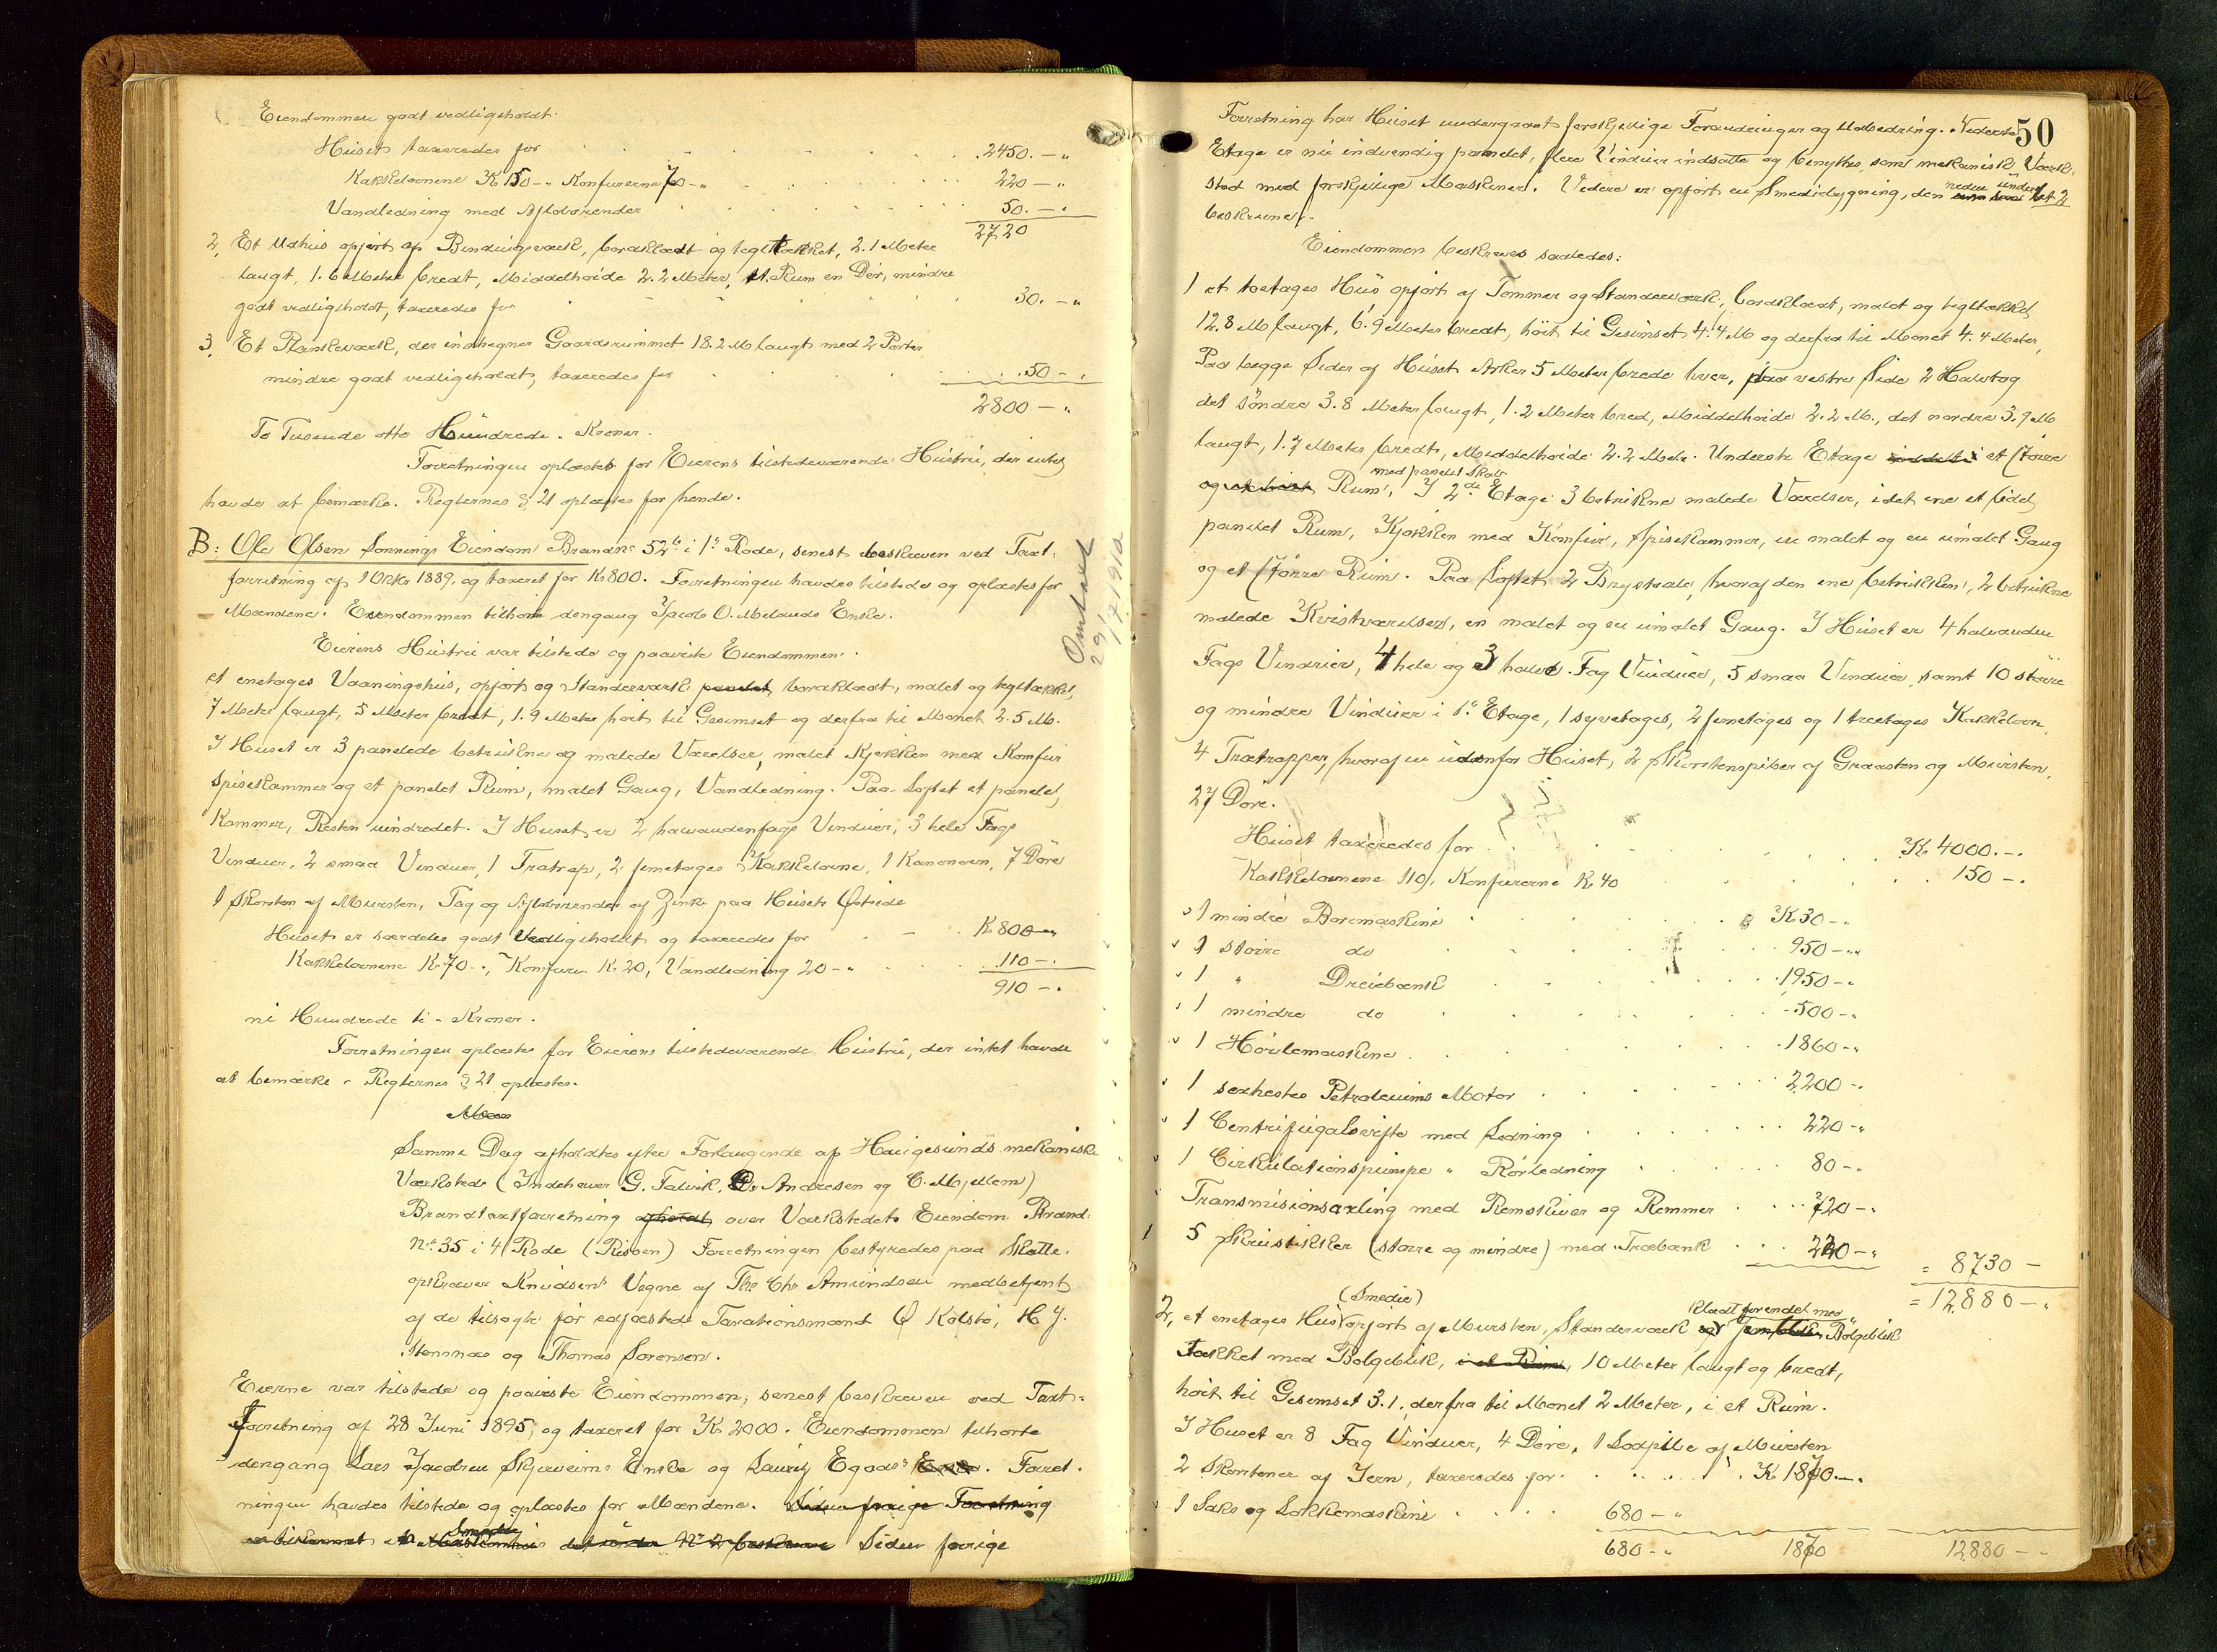 Eiendommen godt vedligeholdt.
Huset taxeredes for . . . 2450.-"
Kakkelovnene Kr 150-" Konfurerne 70-" . . . 220-"
Vandledning med Afløbsrender . . . 50.-"
2720
2, Et Udhus opført af Bindingsværk, bordklædt og teglttækket, 2.1 Meter
langt, 1.6 Meter bredt, Middelhøide 2.2 Meter, et Rum en Dør, mindre
godt vedligeholdt, taxeredes for . . . 30.-"
3, Et Plankeværk, der indhegner Gaardsrummet 18.2 M langt med 2 Porter
mindre godt vedligeholdt, taxeredes for . . . 50-"
2800-"
To Tusende otte Hundrede - Kroner.
Forretningen oplæstes for Eierens tilstedeværende Hustru, der intet
havde at bemærke. Reglernes § 21 oplæstes for hende.
B: Ole Olsen Sønnings Eiendom Brandnr 52b i 1s Rode, senest beskreven ved Taxt-
forretning af 1 Oktbr 1889, og taxeret for Kr 800. Forretningen havdes tilstede og oplæstes for
Mændene. Eiendommen tilhørte dengang Jacob O. Melands Enke.
Eierens Hustru var tilstede og paaviste Eiendommen:
et enetages Vaaningshus, opført og Standerværk panelet, bordklædt, malet og tegltækket,
7 Meter langt, 5 Meter bredt, 1.9 Meter høit til Gesimset og derfra til Mønet 2.5 M.
I Huset er 3 panelede betrukne og malede Værelser, malet Kjøkken med Komfur
Spisekammer og et panelet Rum, malet Gang, Vandledning. Paa Loftet et panelet
Kammer, Resten uindredet. I Huset er 2 halvandenfags Vinduer, 3 hele Fags
Vinduer, 2 smaa Vinduer, 1 Trætrap, 2 femetages Kakkelovne, 1 Kanonovn, 7 Døre
1 Skorsten af Mursten, Tag og Afløbsrender af Zink paa Husets Østside
Huset er særdeles godt Vedligeholdt og taxeredes for . . . Kr 800-"
Kakkelovnene Kr 70-", Komfuren Kr 20, Vandledning 20-" . . . 110-"
910-"
ni Hundrede ti - Kroner.
Forretningen oplæstes for Eierens tilstedeværende Hustru, der intet havde
at bemærke - Reglernes § 21 oplæstes.
Omtaxt
29/7 1910
Samme Dag afholdtes efter Forlangende af Haugesunds mekaniske
Værksted (Indehaver G. Talvik, O. Andresen og C. Mjellem)
Brandtaxtforretning afholdt over Værkstedets Eiendom Brand-
Nr 35 i 4 Rode (Risøen) Forretningen bestyredes paa Skatte-
opkræver Knudsens Vegne af Ths. Chr Amundsen medbetjent
af de tilsagte før edfæstede Taxationsmænd O Kolstø, H J.
Stensnæs og Thomas Sørensen.
Eierne var tilstede og paaviste Eiendommen, senest beskreven ved Taxt-
Forretning af 28 Juni 1895, og taxeret for Kr 2000. Eiendommen tilhørte
dengang Lars Jacobsen Skjerveims Enke og Lauritz Egaas' Enke. Forret-
ningen havdes tilstede og oplæstes for Mændene. Siden forige Forretning
Smedie
Siden forrige
50
Forretning har Huset undergaaet forskjellige Forandringer og Udbedring. Nederste
Etage er nu indvendig panelet, flere Vinduer indsatte og benyttes som mekanisk Værk-
sted med forskjellige Maskiner. Videre er opført en Smediebygning, den neden under Lit 2
beskrevne.
Eiendommen beskreves saaledes:
1 et toetages Hus opført af Tømmer og Standerværk, bordklædt, malet og tegltækket
12.8 M langt, 6.9 Meter bredt, høit til Gesimset 4.4 M og derfra til Mønet 4.4 Meter,
Paa begge Sider af Huset Arker 5 Meter brede hver, paa vestre Side 2 Halvtag
det søndre 3.8 Meter langt, 1.2 Meter bred, Middelhøide 2.2 M., det nordre 3.9 M
langt, 1.7 Meter bredt, Middelhøide 2.2 Meter. Underste Etage inddelt i et større
og et lidet Rum, med panelet Skot. I 2de Etage: 3 betrukne malede Værelser, idet ene et lidet
panelet Rum, Kjøkken med Komfur, Spisekammer, en malet og en umalet Gang
og et større Rum. Paa Loftet 2 Brystsale, hvoraf den ene betrukken, 2 betrukne
malede Kvistværelser, en malet og en umalet Gang. I Huset er 4 halvanden
Fags Vinduer, 4 hele og 3 halve Fag Vinduer, 5 smaa Vinduer, samt 10 større
og mindre Vinduer i 1s Etage, 1 syvetages, 2 femetages og 1 treetages Kakkelovn,
4 Trætrapper, hvoraf en udenfor Huset, 2 Skorstenspiber af Graasten og Mursten,
27 Døre.
Huset taxeredes for . . . Kr 4000.-"
Kakkelovnene 110, Konfurerne Kr 40 . . . 150-"
1 mindre Boremaskine . . . Kr 30-"
1 større do . . . 950-"
1 " Dreiebænk . . . 1950-"
1 mindre do . . . 500-"
1 Høvlemaskine . . . 1860-"
1 sexhestes Petroleums Motor . . . 2200-"
1 Centrifugalsvifte med Ledning . . . 220-"
1 Cirkulationspumpe " Rørledning . . . 80-"
Transmisionsaxling med Remskiver og Remmer . . . 720-"
5 Skrustikker (større og mindre) med Træbænk . . . 220-"
= 8730-
= 12880-"
2, et enetages Hus (Smedie) opført af Mursten, Standerværk klædt forendel med Bølgeblik
Tækket med Bølgeblik, i et Rum, 10 Meter langt og bredt,
høit til Gesimset 3.1, derfra til Mønet 2 Meter, i et Rum.
I Huset er 8 Fag Vinduer, 4 Døre, 1 Lodpibe af Mursten
2 Skorstener af Jern, taxeredes for . . . Kr 1870.-"
1 Saks og Lokkemaskine . . . 680-"
680-" 1870 12880-"